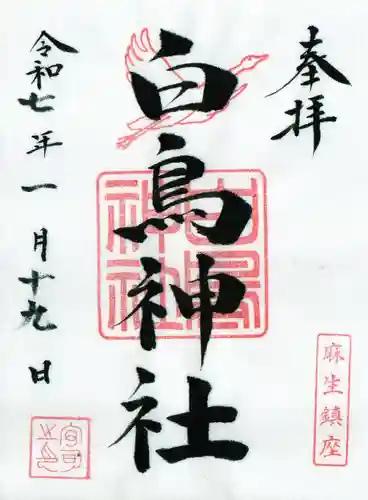 奉拝
麻生鎮座
白鳥神社
白鳥神社
令和七年一月十九日
宮司之印